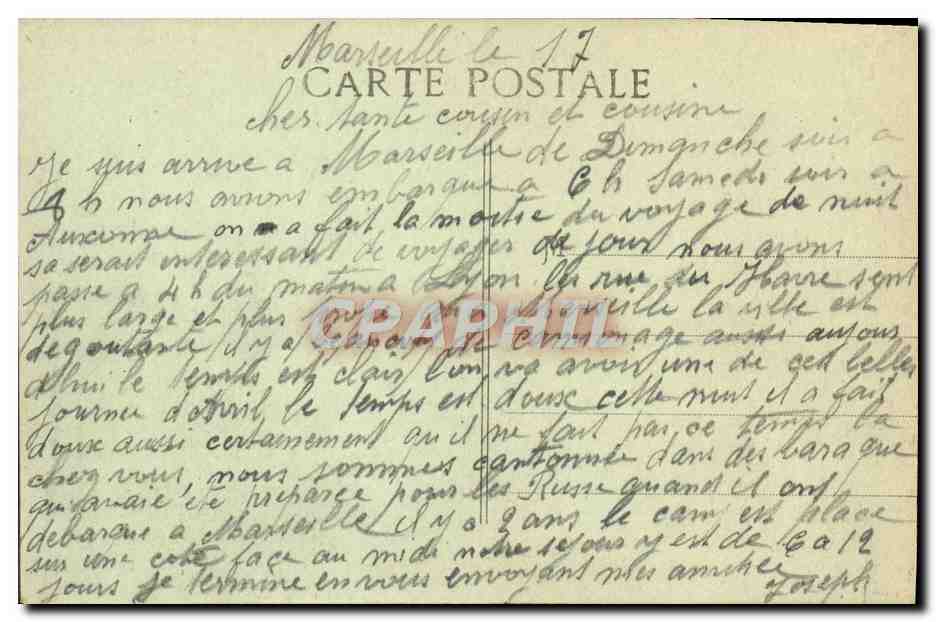 Marseille le 17
CARTE POSTALE
cher tante cousin et cousine
Je suis arrive a Marseille de Dimanche soir a
8 h nous avons embarque a 6 h Samedi soir a
Auxonne on a fait la moitie du voyage de nuit
sa serait interessant de voyager de jour nous avons
passe a 4 h du matin a Lyon les rue du Havre sont
plus large et plus a Marseille la ville est
degoutante il y a de camionnage aussi aujour
d'hui le temps est clair l'on va avoir une de ces belles
journee d'Avril le temps est doux cette nuit il a fait
doux aussi certainement qu'il ne fait pas ce temps la
chez vous, nous sommes cantonnee dans des baraque
qui avais ete preparee pour les Russe quand il ont
debarque a Marseille il y a 2 ans le camp est place
sur une cote face au midi notre sejour y est de 6 a 12
jours je termine en vous envoyant mes amitiee
Joseph
CPAPHIL